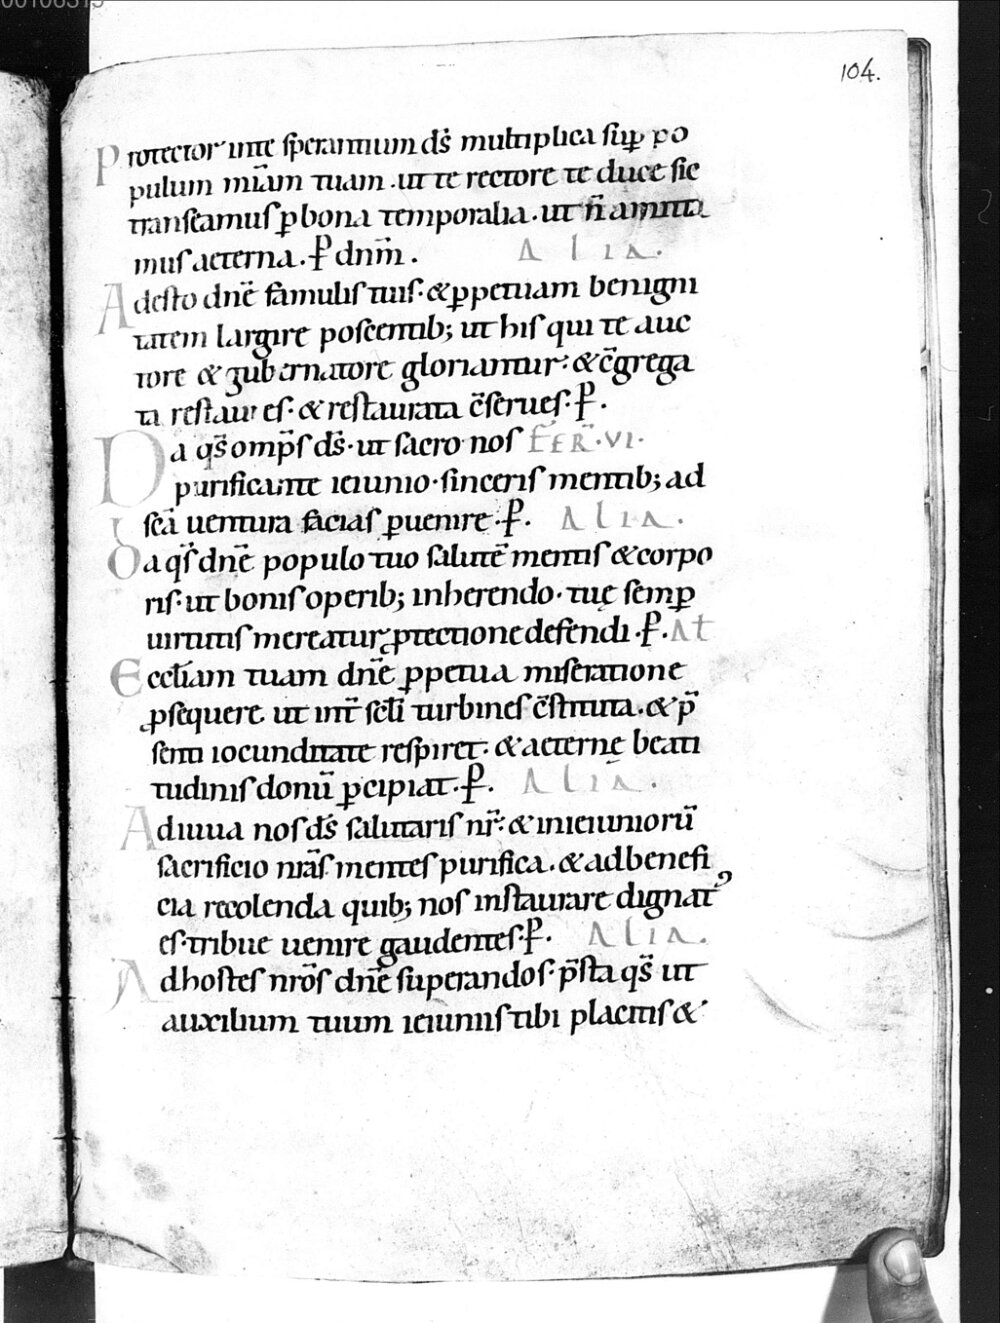 00106315
104.
Protector inte sperantium dṡ multiplica sup̱ po
pulum mīam tuam . ut te rectore te duce sic
transeamus ꝑ bona temporalia . ut n̄ amitta
mus aeterna . P̱ dnm̄ . Alia .
Adesto dnē famulis tuis · & ꝑpetuam benigni
tatem largire poscentib; ut his qui te auc
tore & gubernatore gloriantur · & c̄grega
ta restaures · & restaurata c̄serues · P̱ .
Da qs̄ omp̄s dṡ · ut sacro nos FER̄ · VI ·
purificante ieiunio · sinceris mentib; ad
scā uentura facias ꝑuenire · P̱ . Alia .
Da qs̄ dnē populo tuo salutē mentis & corpo
ris · ut bonis operib; inherendo · tuę semꝑ
uirtutis mereatur ꝓtectione defendi · P̱ . At
Eccłiam tuam dnē ꝑpetua miseratione
ꝓsequere ut int̄ scłi turbines c̄stituta . & p̄
senti iocunditate respiret · & aeternę beati
tudinis donū ꝑcipiat · P̱ . Alia .
Adiuua nos dṡ salutaris nr̄ · & in ieiuniorū
sacrificio nrās mentes purifica . & ad benefi
cia recolenda quib; nos instaurare dignatꝰ
es · tribue uenire gaudentes · P̱ . Alia .
Ad hostes nrōs dnē superandos · p̄sta qs̄ ut
auxilium tuum ieiuniis tibi placitis &